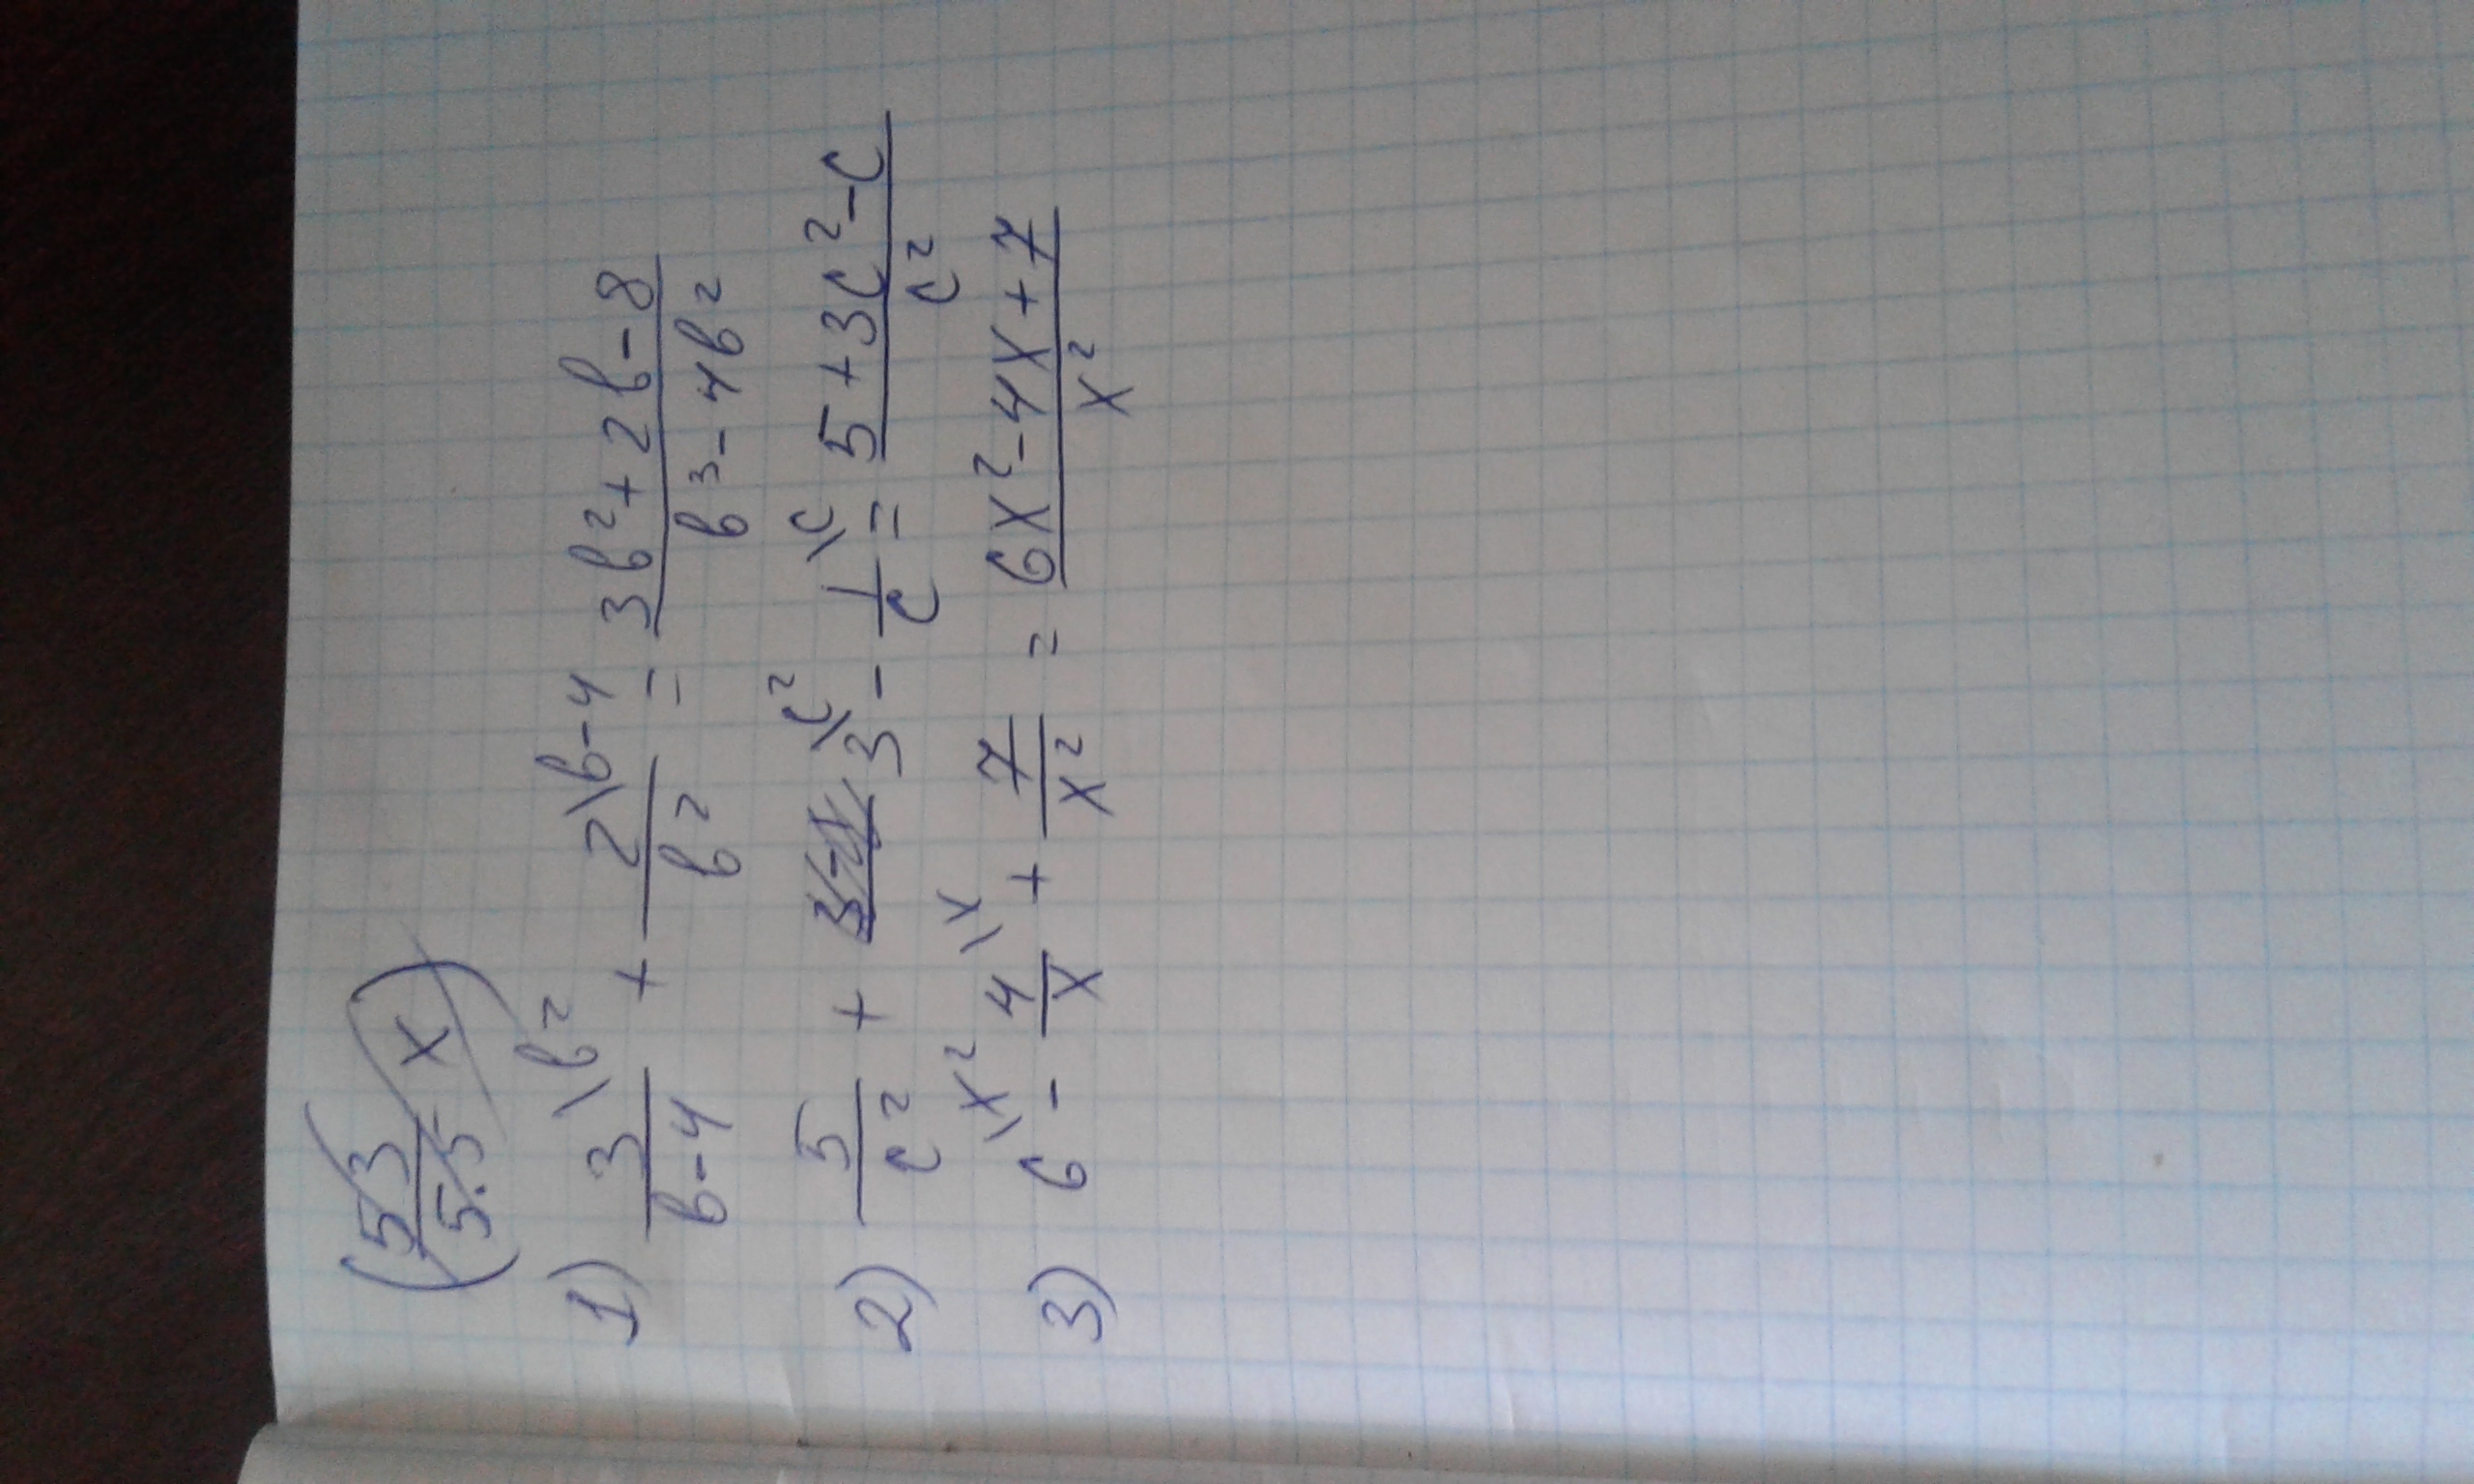 1) \frac{3}{b-4}^{\b^2} + \frac{2}{b^2}^{\b-4} = \frac{3b^2+2b-8}{b^3-4b^2}
2) \frac{5}{c^2} + 3^{\c^2} - \frac{1}{c}^{\c} = \frac{5+3c^2-c}{c^2}
3) 6^{\x^2} - \frac{4}{x}^{\x} + \frac{7}{x^2} = \frac{6x^2-4x+7}{x^2}